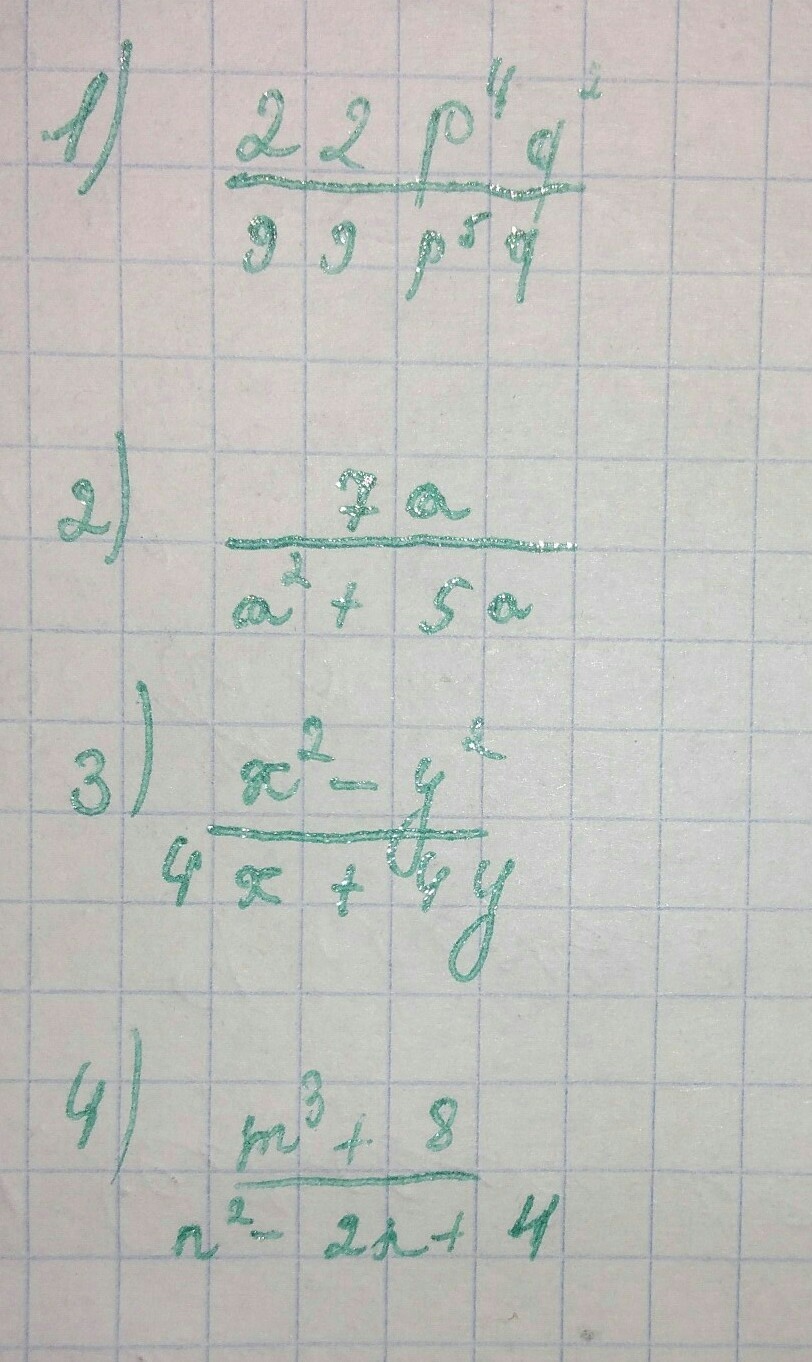 1) 22p⁴q²
99p⁵q
2) 7a
a² + 5a
3) x² - y²
4x + 4y
4) m³ + 8
n² - 2n + 4